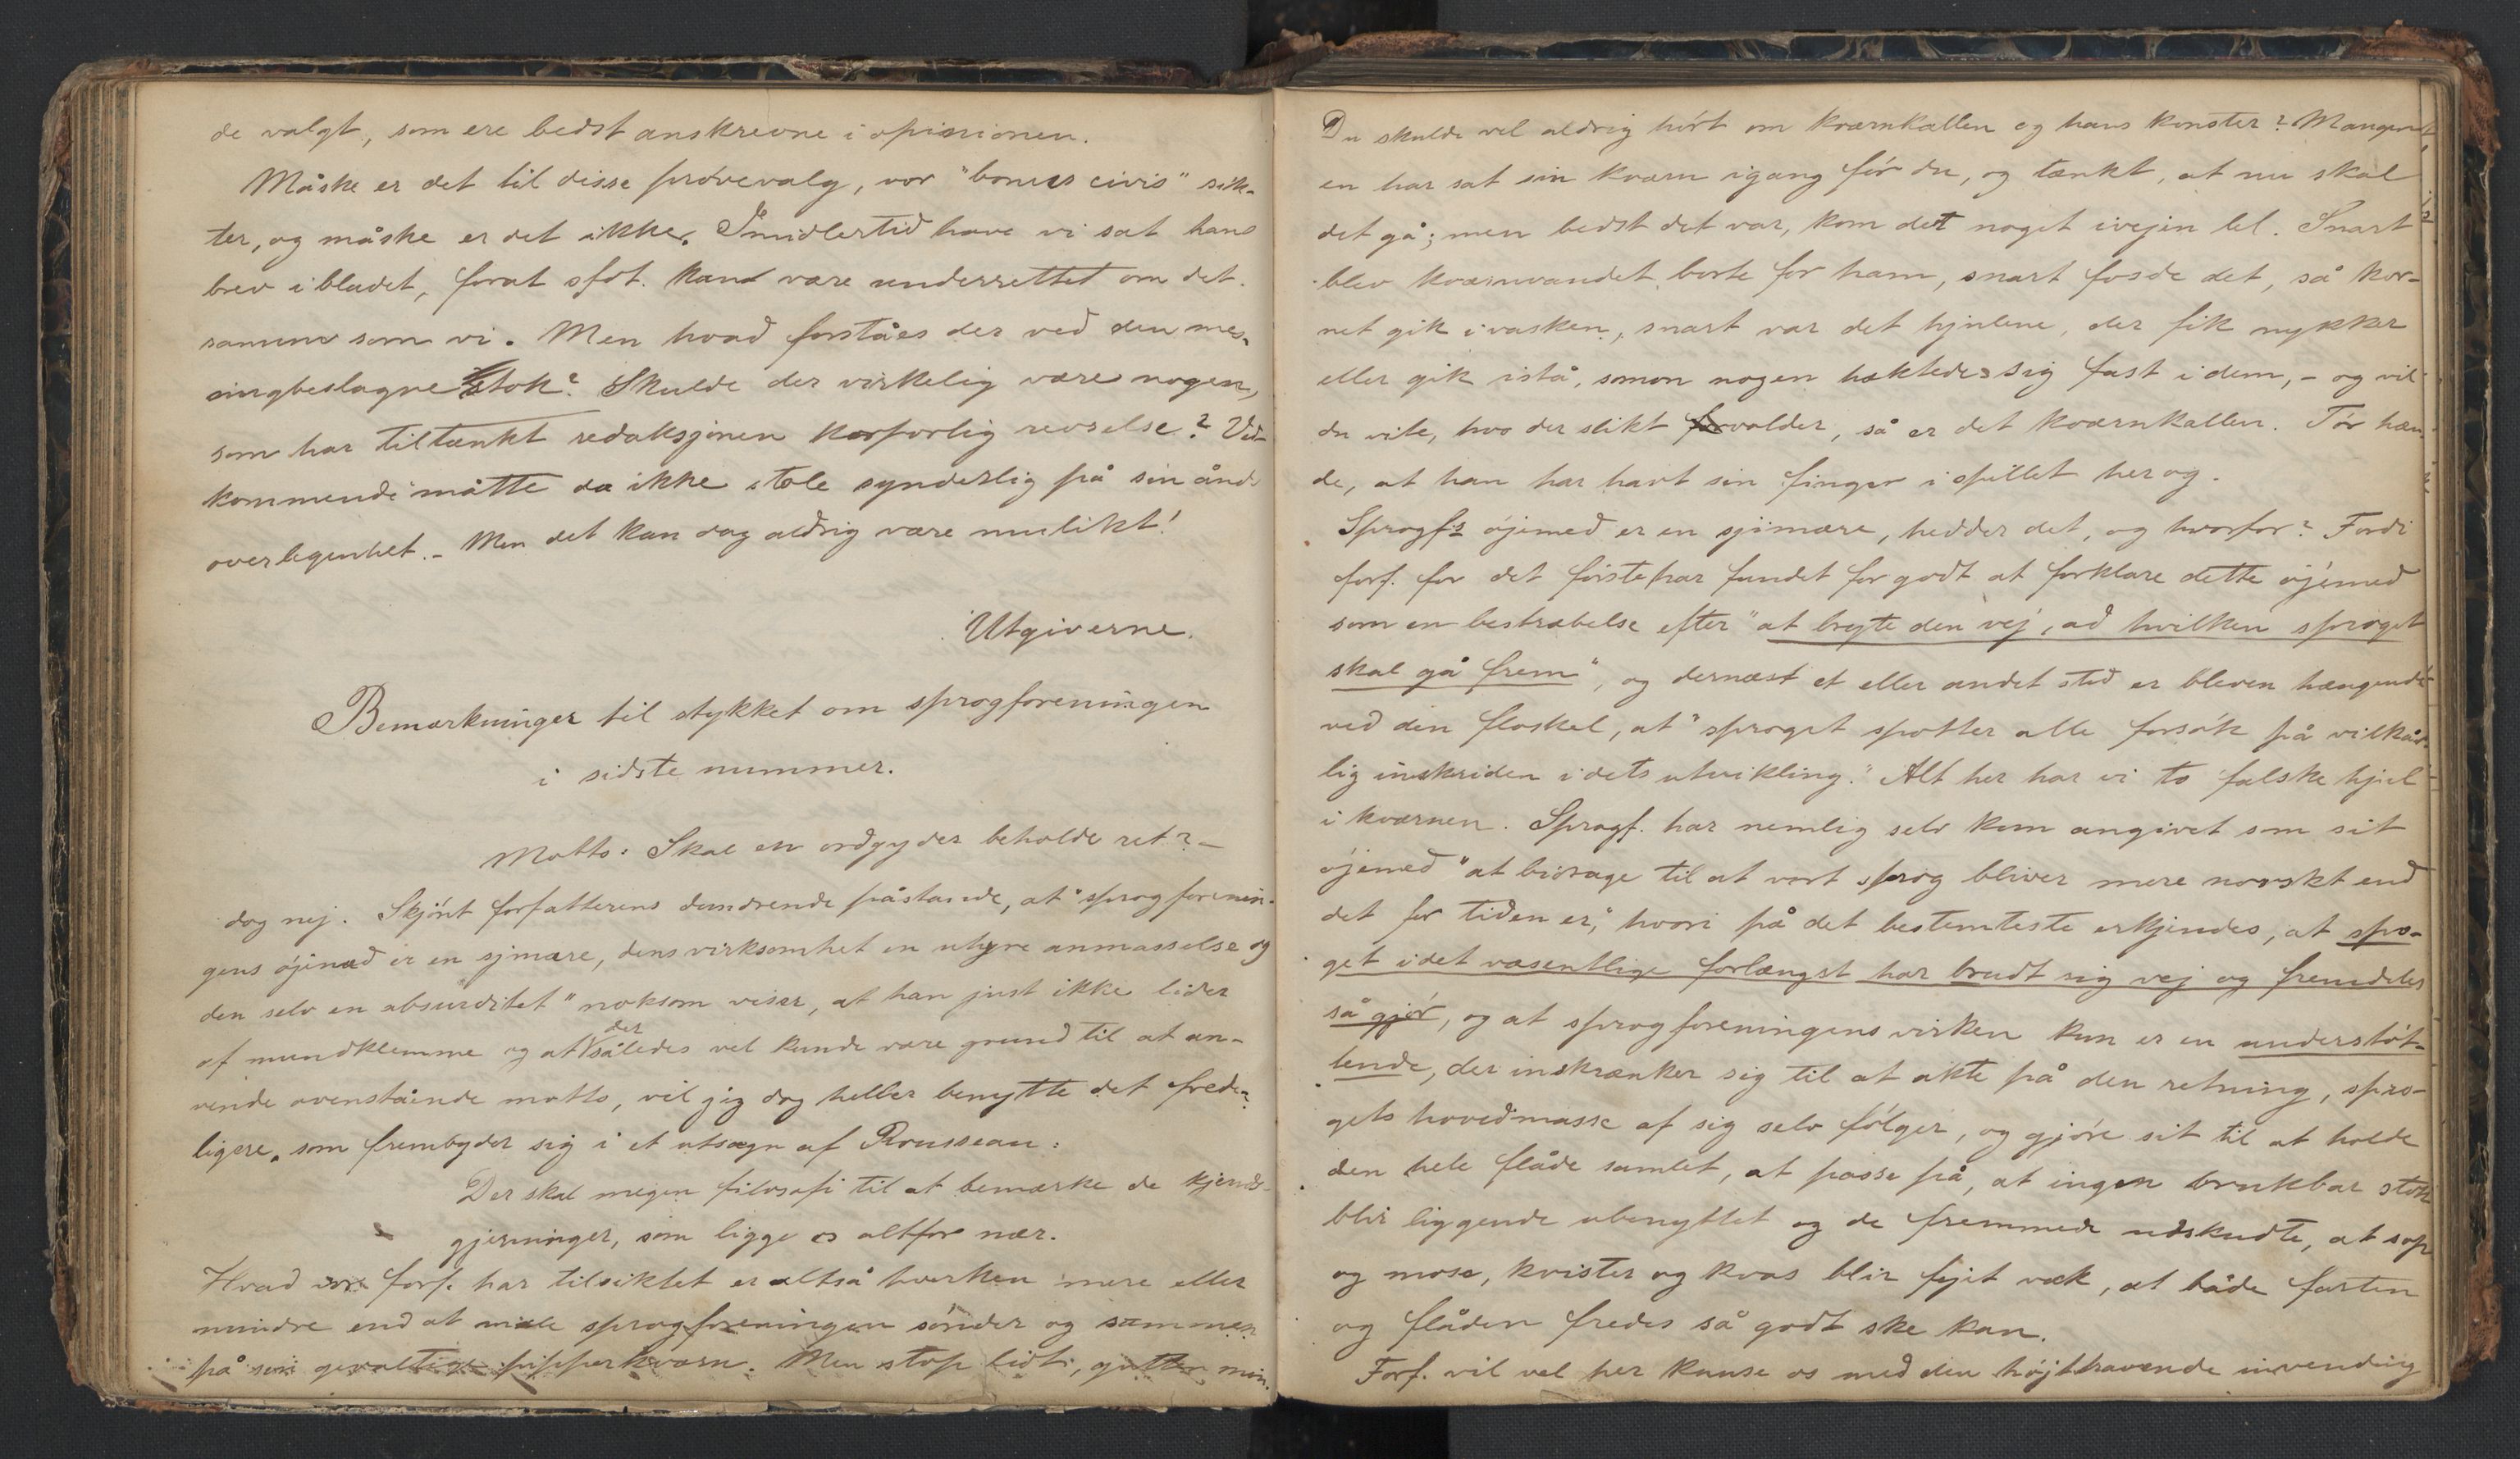 de valgt, som ere bedst anskrevne i opinionen.
Måske er det til disse prövevalg, vor "bonus civis" sik-
ter, og måske er det ikke. Imidlertid have vi sat hans
brev i bladet, forat sfdt. kan være underrettet om det.
samme som vi. Men hvad forståes der ved den mes-
singbeslagne stok? Skulde der virkelig være nogen,
som har tiltænkt redaksjonen korporlig revselse? Ved-
kommende måtte da ikke stole synderlig på sin ånds
overlegenhet. – Men det kan dog aldrig være mulikt!
Utgiverne.
Bemærkninger til stykket om sprogforeningen
i sidste nummer.
Motto: Skal en ordgyder beholde ret? –
dog nej. Skjönt forfatterens dundrende påstande, at "sprogforenin-
gens öjemed er en sjimære, dens virksomhet en uhyre anmasselse og
den selv en absurditet" noksom viser, at han just ikke lider
af mundklemme og at der således vel kunde være grund til at an-
vende ovenstående motto, vil jeg dog heller benytte det frede-
ligere, som frembyder sig i et utsagn af Rousseau:
Der skal megen filosofi til at bemærke de kjends-
gjerninger, som ligge os altfor nær.
Hvad forf. har tilsiktet er altså hverken mere eller
mindre end at male sprogforeningen sönder og sammen
på sin gevaltige pipperkværn. Men stop lidt, gutten min.
Du skulde vel aldrig hört om kværnkallen og hans konster? Mangen
en har sat sin kværn igang för du, og tænkt, at nu skal
det gå; men bedst det var, kom det noget ivejen lel. Snart
blev kværnvandet borte for ham, snart fosde det, så kor-
net gik i vasken, snart var det hjulene, der fik nykker
eller gik istå, somom nogen hektede sig fast i dem, – og vil
du vite, hvo der slikt volder, så er det kværnkallen. Tör hæn-
de, at han har havt sin finger i spillet her og.
Sprogfs öjemed er en sjimære, hedder det, og hvorfor? Fordi
forf. for det förste har fundet for godt at forklare dette öjemed
som en bestræbelse efter "at bryte den vej, ad hvilken sproget
skal gå frem", og dernæst et eller andet sted er bleven hængende
ved den floskel, at "sproget spotter alle forsök på vilkår-
lig inskriden i dets utvikling." Alt her har vi to falske hjul
i kværnen. Sprogf. har nemlig selv kun angivet som sit
öjemed "at bidrage til at vort sprog bliver mere norskt end
det for tiden er," hvori på det bestemteste erkjendes, at spro-
get i det væsentlige forlængst har brudt sig vej og fremdeles
så gjör, og at sprogforeningens virken kun er en understöt-
tende, der inskrænker sig til at akte på den retning, spro-
gets hovedmasse af sig selv fölger, og gjöre sit til at holde
den hele flåde samlet, at passe på, at ingen brukbar stok
blir liggende ubenyttet og de fremmede udskudte, at sop
og mose, kvister og kvas blir fejet væk, at både farten
og flåden fredes så godt ske kan.
Forf. vil vel her kanse os med den höjtravende invending